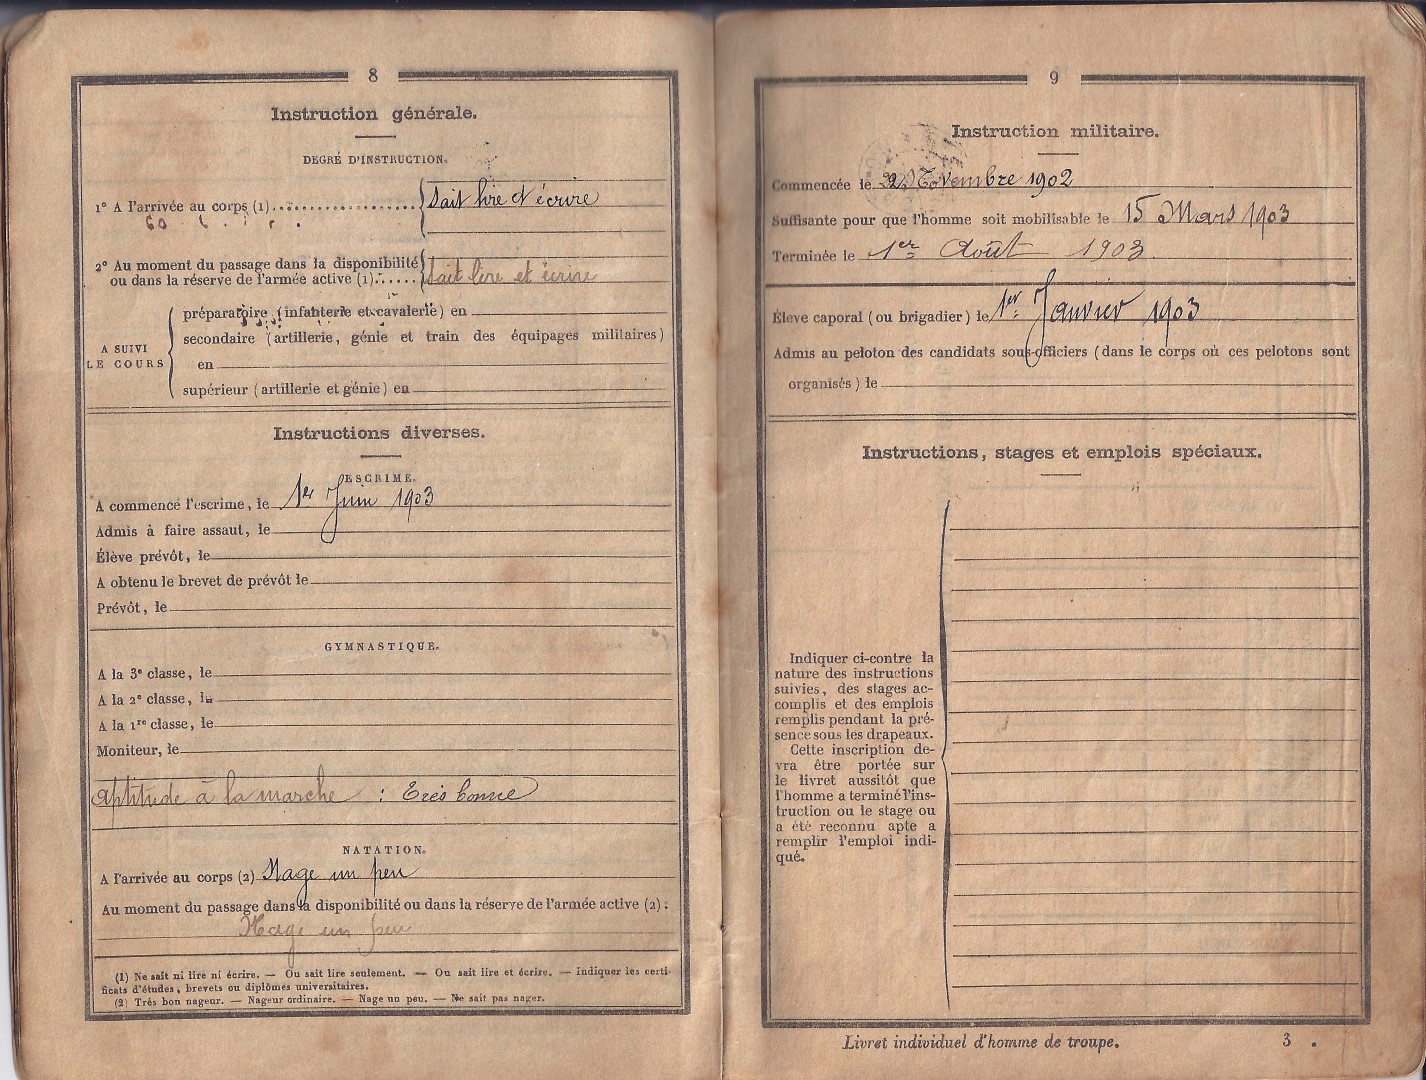 8
Instruction générale.
DEGRÉ D'INSTRUCTION.
1° A l'arrivée au corps (1)....................
Sait lire et écrire
2° Au moment du passage dans la disponibilité
ou dans la réserve de l'armée active (1)......
Sait lire et écrire
A SUIVI
LE COURS
préparatoire (infanterie et cavalerie) en
secondaire (artillerie, génie et train des équipages militaires)
en
supérieur (artillerie et génie) en
Instructions diverses.
ESCRIME.
A commencé l'escrime, le 1er Juin 1903
Admis à faire assaut, le
Élève prévôt, le
A obtenu le brevet de prévôt le
Prévôt, le
GYMNASTIQUE.
A la 3e classe, le
A la 2e classe, le
A la 1re classe, le
Moniteur, le
Aptitude à la marche : Très bonne
NATATION.
A l'arrivée au corps (2) Nage un peu
Au moment du passage dans la disponibilité ou dans la réserve de l'armée active (2) :
Nage un peu
(1) Ne sait ni lire ni écrire. — Ou sait lire seulement. — Ou sait lire et écrire. — Indiquer les certi-
ficats d'études, brevets ou diplômes universitaires.
(2) Très bon nageur. — Nageur ordinaire. — Nage un peu. — Ne sait pas nager.
9
Instruction militaire.
Commencée le Novembre 1902
Suffisante pour que l'homme soit mobilisable le 15 Mars 1903
Terminée le 1er Août 1903
Élève caporal (ou brigadier) le 1er Janvier 1903
Admis au peloton des candidats sous-officiers (dans le corps où ces pelotons sont
organisés) le
Instructions, stages et emplois spéciaux.
Indiquer ci-contre la
nature des instructions
suivies, des stages ac-
complis et des emplois
remplis pendant la pré-
sence sous les drapeaux.
Cette inscription de-
vra être portée sur
le livret aussitôt que
l'homme a terminé l'ins-
truction ou le stage ou
a été reconnu apte a
remplir l'emploi indi-
qué.
Livret individuel d'homme de troupe.
3 .